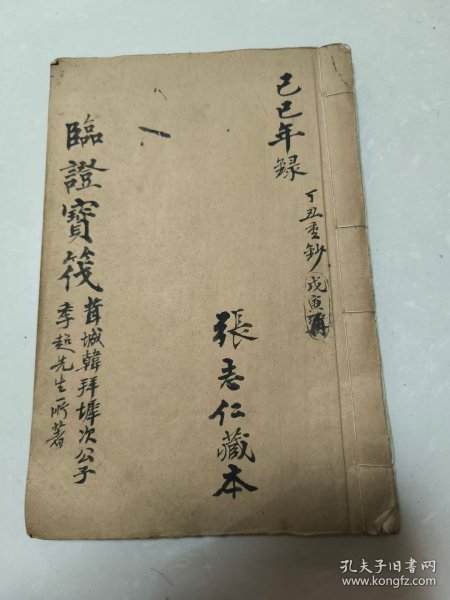 己巳年録
丁丑重鈔 戊寅
張志仁藏本
臨證寶筏
茸城韓拜墀次公子
李起先生所著
孔夫子旧书网
www.kongfz.com